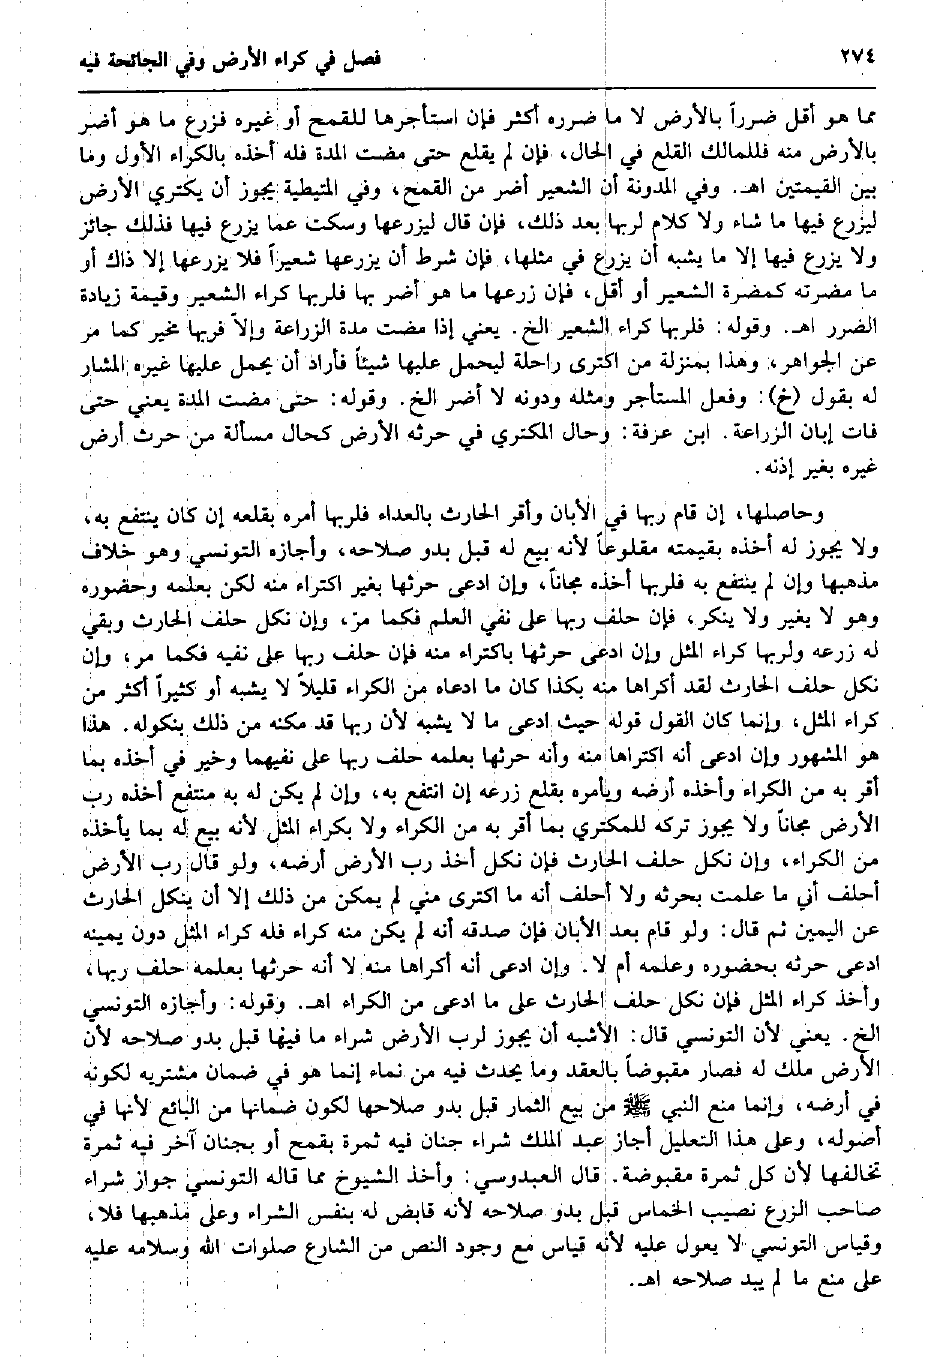 ٢٧٤
فصل في كراء الأرض وفي الجائحة فيه
مما هو أقل ضرراً بالأرض لا ما ضرره أكثر فإن استأجرها للقمح أو غيره فزرع ما هو أضر
بالأرض منه فللمالك القلع في الحال، فإن لم يقلع حتى مضت المدة فله أخذه بالكراء الأول وما
بين القيمتين اهـ. وفي المدونة أن الشعير أضر من القمح، وفي المتيطية يجوز أن يكتري الأرض
ليزرع فيها ما شاء ولا كلام لربها بعد ذلك، فإن قال ليزرعها وسكت عما يزرع فيها فذلك جائز
ولا يزرع فيها إلا ما يشبه أن يزرع في مثلها، فإن شرط أن يزرعها شعيراً فلا يزرعها إلا ذاك أو
ما مضرته كمضرة الشعير أو أقل، فإن زرعها ما هو أضر بها فلربها كراء الشعير وقيمة زيادة
الضرر اهـ. وقوله: فلربها كراء الشعير الخ. يعني إذا مضت مدة الزراعة وإلاّ فربها مخير كما مر
عن الجواهر، وهذا بمنزلة من اكترى راحلة ليحمل عليها شيئاً فأراد أن يحمل عليها غيره المشار
له بقول (خ): وفعل المستأجر ومثله ودونه لا أضر الخ. وقوله: حتى مضت المدة يعني حتى
فات إبان الزراعة. ابن عرفة: وحال المكتري في حرثه الأرض كحال مسألة من حرث أرض
غيره بغير إذنه.
وحاصلها، إن قام ربها في الأبان وأقر الحارث بالعداء فلربها أمره بقلعه إن كان ينتفع به،
ولا يجوز له أخذه بقيمته مقلوعاً لأنه بيع له قبل بدو صلاحه، وأجازه التونسي وهو خلاف
مذهبها وإن لم ينتفع به فلربها أخذه مجاناً، وإن ادعى حرثها بغير اكتراء منه لكن بعلمه وحضوره
وهو لا يغير ولا ينكر، فإن حلف ربها على نفي العلم فكما مرّ، وإن نكل حلف الحارث وبقي
له زرعه ولربها كراء المثل وإن ادعى حرثها باكتراء منه فإن حلف ربها على نفيه فكما مر، وإن
نكل حلف الحارث لقد أكراها منه بكذا كان ما ادعاه من الكراء قليلاً لا يشبه أو كثيراً أكثر من
كراء المثل، وإنما كان القول قوله حيث ادعى ما لا يشبه لأن ربها قد مكنه من ذلك بنكوله. هذا
هو المشهور وإن ادعى أنه اكتراها منه وأنه حرثها بعلمه حلف ربها على نفيهما وخير في أخذه بما
أقر به من الكراء وأخذه أرضه ويأمره بقلع زرعه إن انتفع به، وإن لم يكن له به منتفع أخذه رب
الأرض مجاناً ولا يجوز تركه للمكتري بما أقر به من الكراء ولا بكراء المثل لأنه بيع له بما يأخذه
من الكراء، وإن نكل حلف الحارث فإن نكل أخذ رب الأرض أرضه، ولو قال رب الأرض
أحلف أني ما علمت بحرثه ولا أحلف أنه ما اكترى مني لم يمكن من ذلك إلا أن ينكل الحارث
عن اليمين ثم قال: ولو قام بعد الأبان فإن صدقه أنه لم يكن منه كراء فله كراء المثل دون يمينه
ادعى حرثه بحضوره وعلمه أم لا. وإن ادعى أنه أكراها منه لا أنه حرثها بعلمه حلف ربها،
وأخذ كراء المثل فإن نكل حلف الحارث على ما ادعى من الكراء اهـ. وقوله: وأجازه التونسي
الخ. يعني لأن التونسي قال: الأشبه أن يجوز لرب الأرض شراء ما فيها قبل بدو صلاحه لأن
الأرض ملك له فصار مقبوضاً بالعقد وما يحدث فيه من نماء إنما هو في ضمان مشتريه لكونه
في أرضه، وإنما منع النبي ﷺ من بيع الثمار قبل بدو صلاحها لكون ضمانها من البائع لأنها في
أصوله، وعلى هذا التعليل أجاز عبد الملك شراء جنان فيه ثمرة بقمح أو بجنان آخر فيه ثمرة
تخالفها لأن كل ثمرة مقبوضة. قال العبدوسي: وأخذ الشيوخ مما قاله التونسي جواز شراء
صاحب الزرع نصيب الخماس قبل بدو صلاحه لأنه قابض له بنفس الشراء وعلى مذهبها فلا،
وقياس التونسي لا يعول عليه لأنه قياس مع وجود النص من الشارع صلوات الله وسلامه عليه
على منع ما لم يبد صلاحه اهـ.